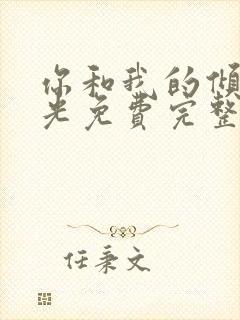 你和我的倾
光免费完整
任秉文